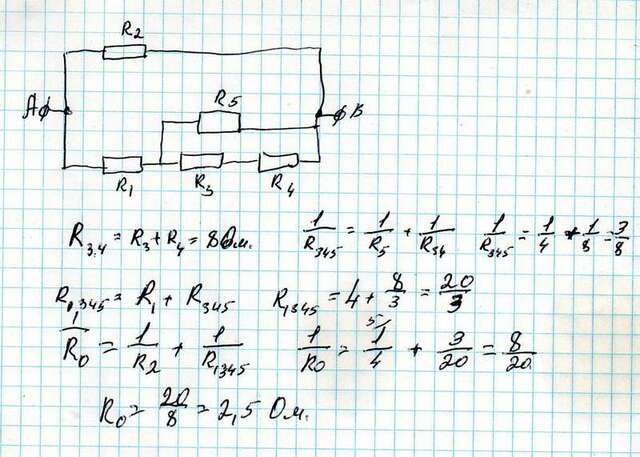 R2
A
R5
B
R1 R3 R4
R3,4 = R3 + R4 = 8 Ом. 1/R345 = 1/R5 + 1/R34 1/R345 = 1/4 + 1/8 = 3/8
R1,345 = R1 + R345 R1345 = 4 + 8/3 = 20/3
1/R0 = 1/R2 + 1/R1345 1/R0 = 5/1/4 + 3/20 = 8/20
R0 = 20/8 = 2,5 Ом.